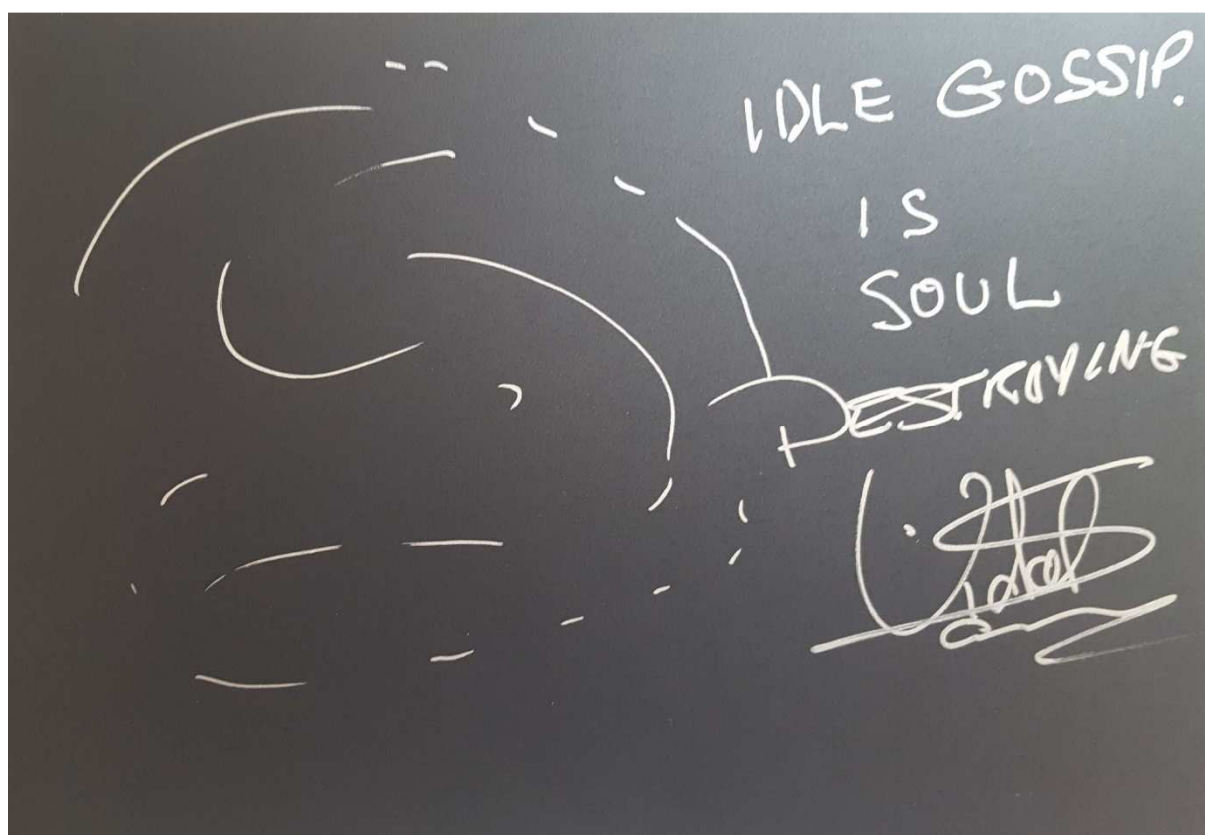 IDLE GOSSIP.
IS
SOUL
DESTROYING